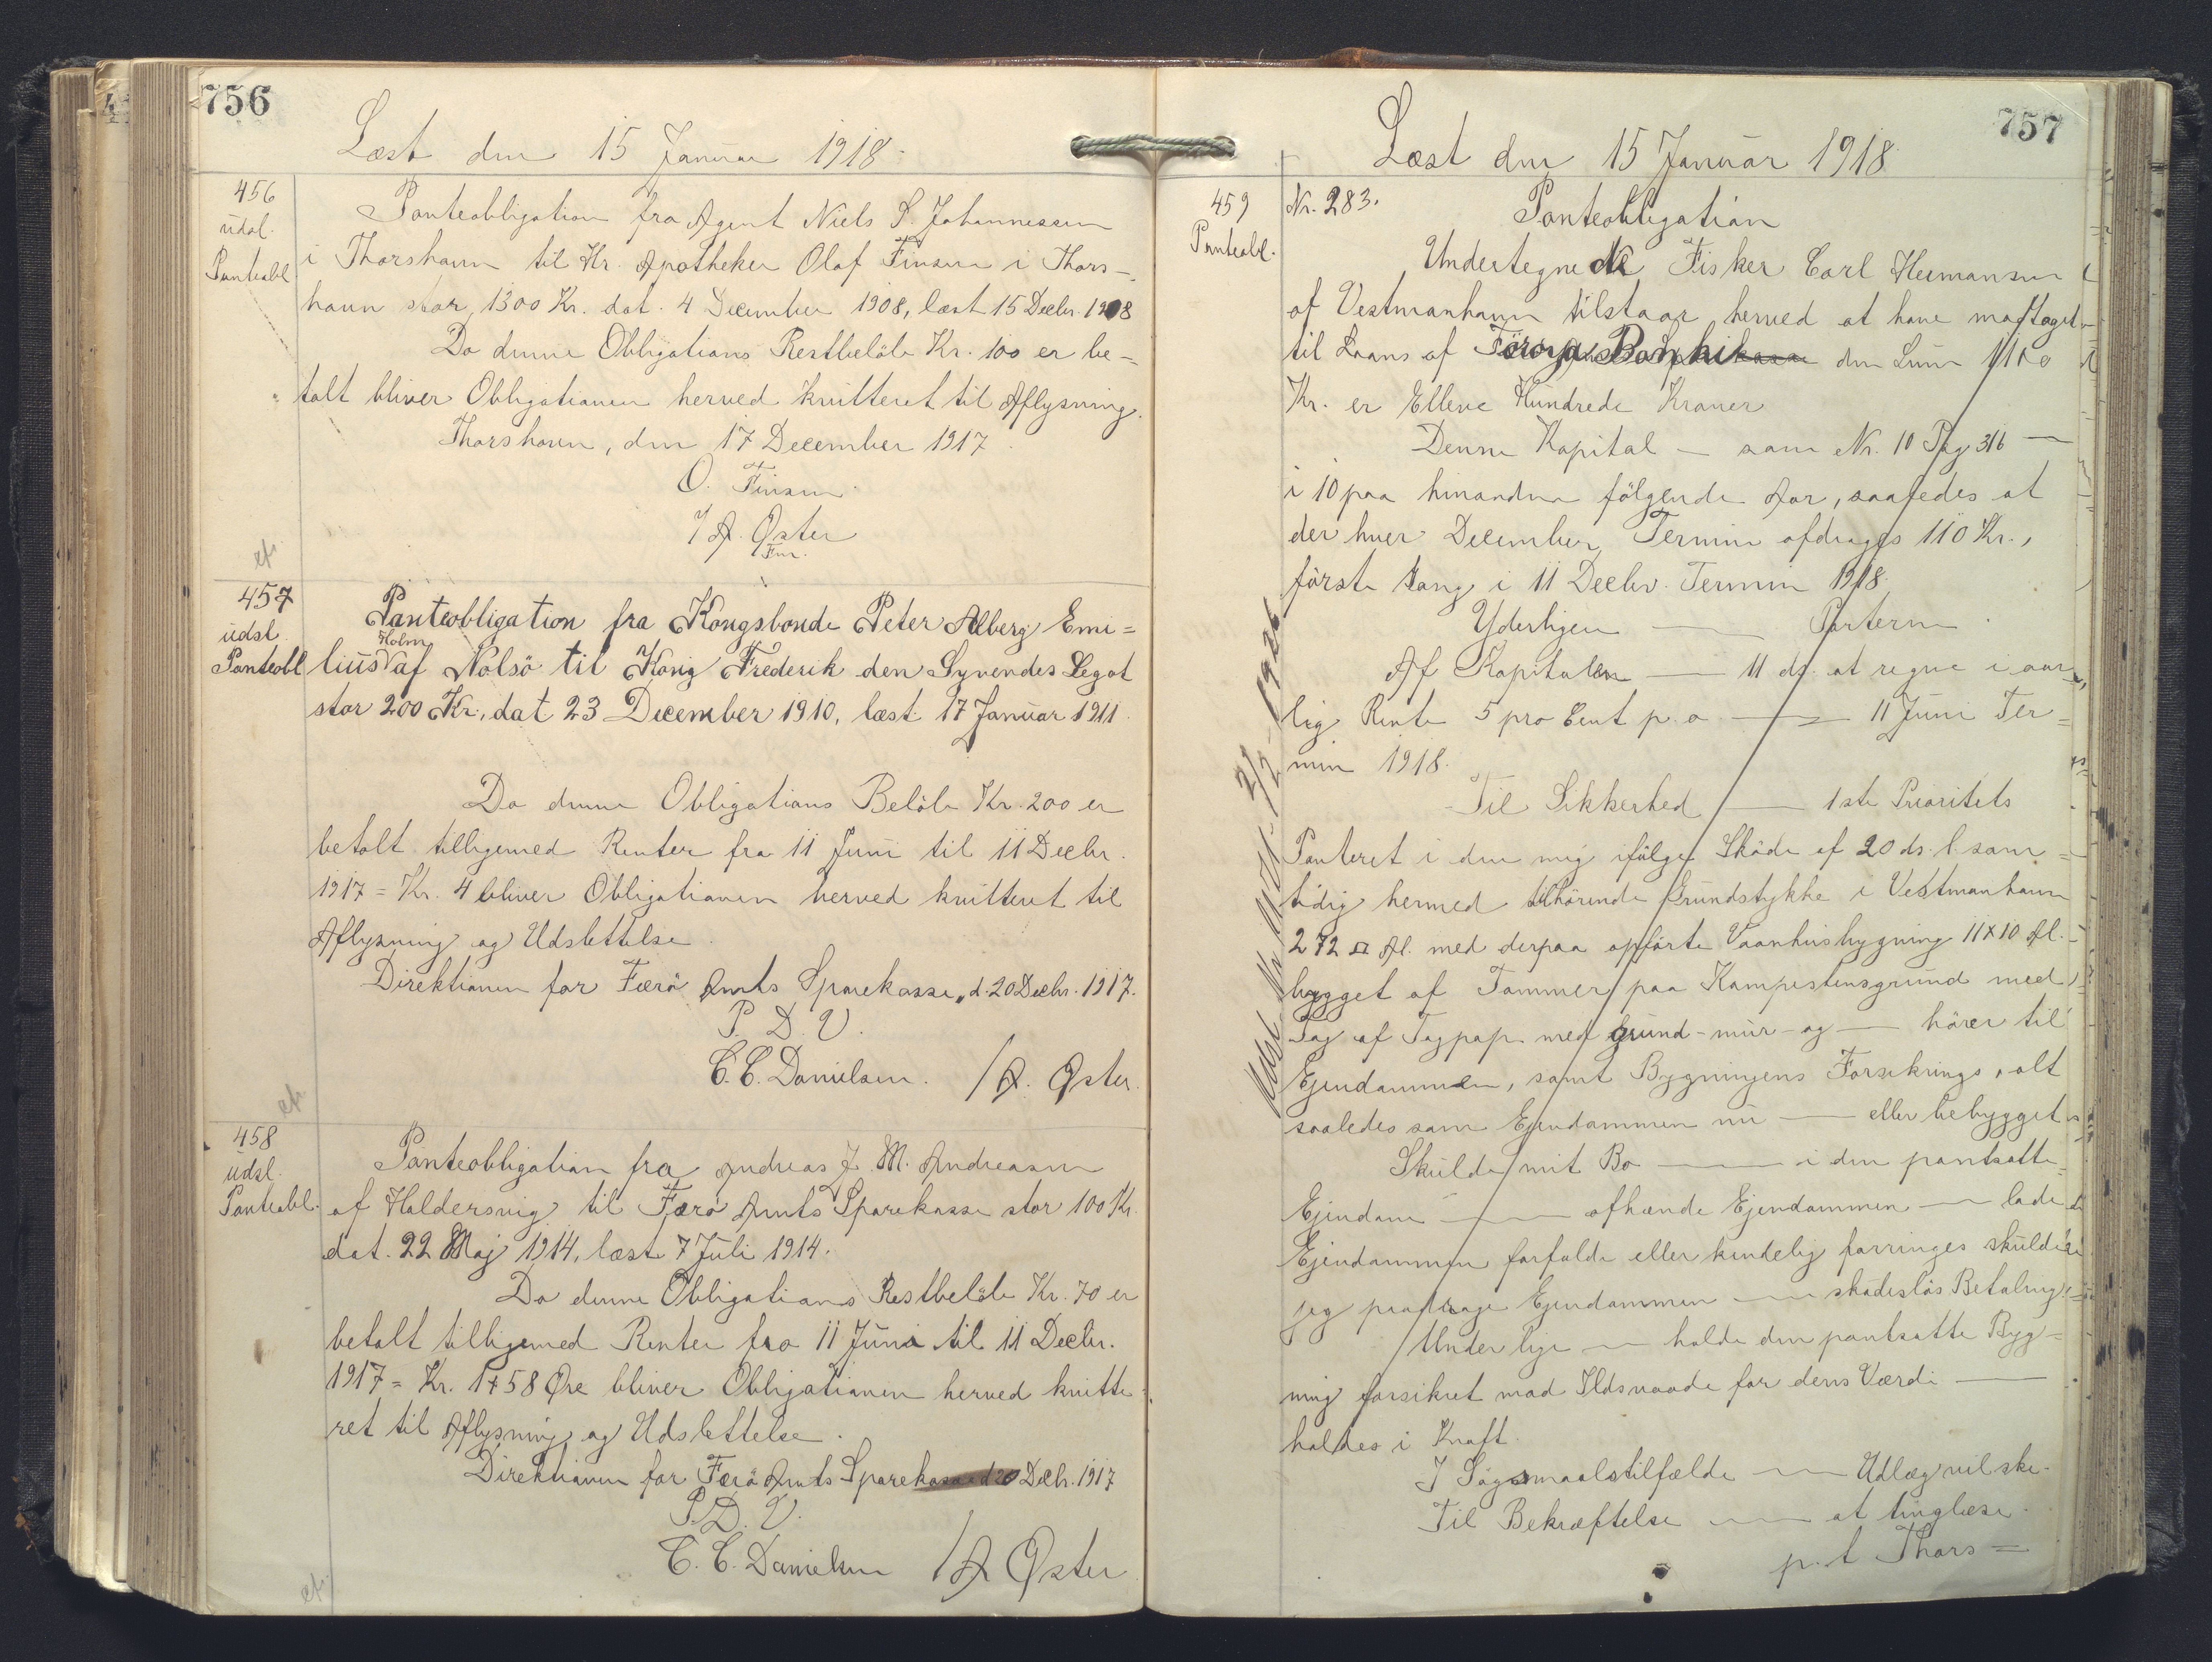 756
Læst den 15 Januar 1918
456
udsl.
Panteobl
Panteobligation fra Agent Niels S. Johannessen
i Thorshavn til Hr. Apotheker Olaf Finsen i Thors-
havn stor 1300 Kr. dat. 4 December 1908, læst 15 Decbr. 1908
Da denne Obligations Restbelöb Kr. 100 er be-
talt bliver Obligationen herved kvitteret til Aflysning.
Thorshavn, den 17 December 1917
O. Finsen
/A. Øster
Fm.
457
udsl.
Panteobl
Panteobligation fra Kongsbonde Peter Alberg Emi=
Holm
lius af Nolsö til Kong Frederik den Syvendes Legat
stor 200 Kr., dat 23 December 1910, læst 17 Januar 1911.
Da denne Obligations Belöb Kr. 200 er
betalt tilligemed Renter fra 11 Juni til 11 Decbr.
1917 = Kr. 4 bliver Obligationen herved kvitteret til
Aflysning og Udslettelse.
Direktionen for Færö Amts Sparekasse, d. 20 Decbr. 1917.
P. D. V.
C. C. Danielsen. /A. Øster.
458
udsl.
Panteobl.
Panteobligation fra Andreas J. M. Andreasen
af Haldersvig til Færö Amts Sparekasse stor 100 Kr.
dat. 22 Maj 1914, læst 7 Juli 1914.
Da denne Obligations Restbelöb Kr. 70 er
betalt tilligemed Renter fra 11 Juni til 11 Decbr.
1917 = Kr. 1 58 Øre bliver Obligationen herved kvitte=
ret til Aflysning og Udslettelse.
Direktionen for Færö Amts Sparekasse d 20 Decbr. 1917
P. D. V.
C. C. Danielsen /A Øster
757
Læst den 15 Januar 1918
459
Panteobl.
Nr. 283. Panteobligation
Undertegnede Fisker Carl Hermansen
af Vestmanhavn tilstaar herved at have modtaget
til Laans af Föroya Banki den Sum 1100
Kr. er Elleve Hundrede Kroner
Denne Kapital — som Nr. 10 Pag 316 —
i 10 paa hinanden fölgende Aar, saaledes at
der hver December Termin afdrages 110 Kr.,
förste Gang i 11 Decbr. Termin 1918.
Yderligere — Parterne
Af Kapitalen — 11 ds. at regne i aar=
lig Rente 5 pro Cent p. a — 11 Juni Ter=
min 1918.
Til Sikkerhed — 1ste Prioritets
Panteret i den mig ifölge Sköde af 20 ds. l. sam=
tidig hermed tilhörende Grundstykke i Vestmanhavn
272 □ Al. med derpaa opförte Vaanhusbygning 11x10 Al.
bygget af Tømmer paa Kampestensgrund med
Tag af Tagpap med grund-mur- og — hörer til
Ejendommen, samt Bygningens Forsikrings, alt
saaledes som Ejendommen nu — eller bebygget
Skulde mit Bo — i den pantsatte
Ejendom — afhænde Ejendommen — lade
Ejendommen forfalde eller kendelig forringes skulde
jeg fradrage Ejendommen — skadeslös Betaling
Underlige — holde den pantsatte Byg=
ning forsikret mod Ildsvaade for dens Værdi —
holdes i Kraft.
I Søgsmaalstilfælde — Udlæg vil ske.
Til Bekræftelse — at tinglæse.
p. t Thors=